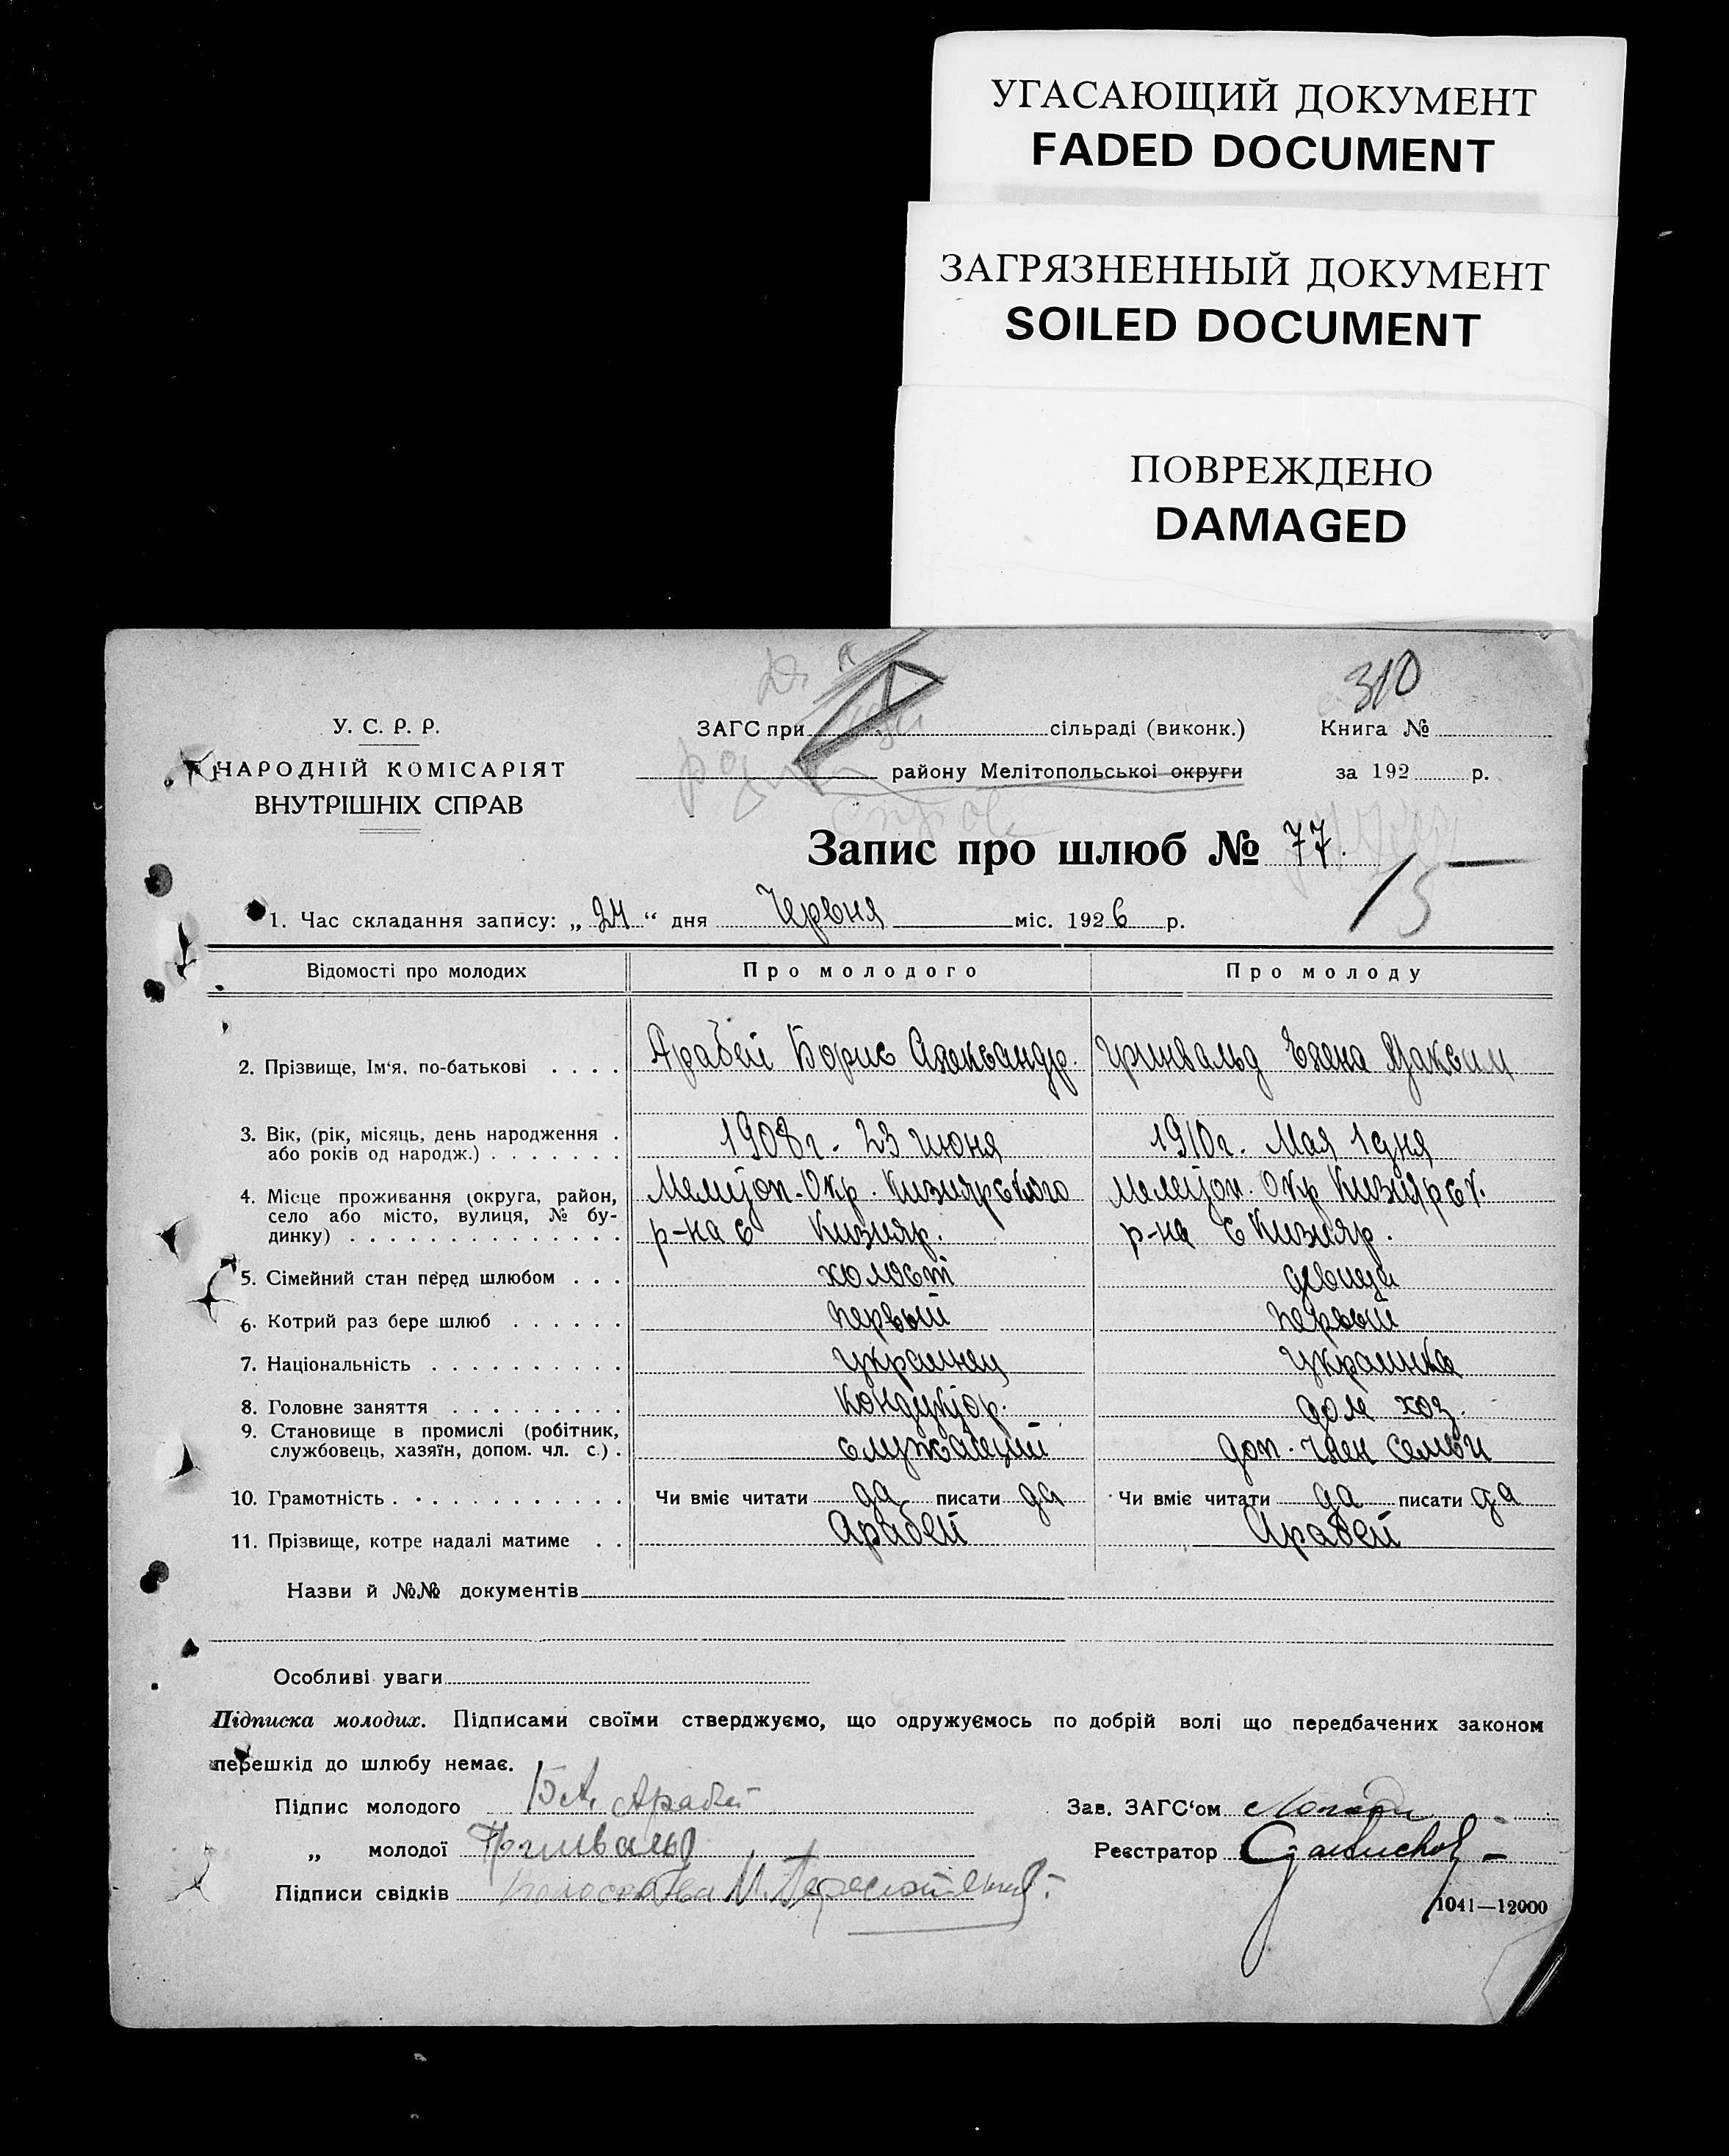 УГАСАЮЩИЙ ДОКУМЕНТ
FADED DOCUMENT
ЗАГРЯЗНЕННЫЙ ДОКУМЕНТ
SOILED DOCUMENT
ПОВРЕЖДЕНО
DAMAGED
310
У. С. Р. Р.
НАРОДНІЙ КОМІСАРІЯТ
ВНУТРІШНІХ СПРАВ
ЗАГС при сільраді (виконк.)
району Мелітопольської округи
Книга №
за 192 р.
Запис про шлюб № 77.
15
1. Час складання запису: „ 24 “ дня Червня міс. 1926 р.
Відомості про молодих Про молодого Про молоду
2. Прізвище, Ім‘я, по-батькові . . . . Арабей Борис Александр. Гринвальд Елена Максим
3. Вік, (рік, місяць, день народження . 1908 г. - 23 июня 1910 г. Мая 1 дня
або років од народж.) . . . . . . .
4. Місце проживання (округа, район, Мелитоп. Окр. Кизиярского Мелитоп. Окр Кизиярск.
село або місто, вулиця, № бу-
динку) . . . . . . . . . . . . . . р-на с Кизияр. р-на с Кизияр.
5. Сімейний стан перед шлюбом . . . холост девица
6. Котрий раз бере шлюб . . . . . . первый первый
7. Національність . . . . . . . . . . украинец украинка
8. Головне заняття . . . . . . . . . кондуктор. дом хоз.
9. Становище в промислі (робітник,
службовець, хазяїн, допом. чл. с.) . служащий доп. член семьи
10. Грамотність . . . . . . . . . . . . Чи вміє читати да писати да Чи вміє читати да писати да
11. Прізвище, котре надалі матиме . . Арабей Арабей
Назви й №№ документів
Особливі уваги
Підписка молодих. Підписами своїми стверджуємо, що одружуємось по добрій волі що передбачених законом
перешкід до шлюбу немає.
Підпис молодого Б.А. Арабей Зав. ЗАГС‘ом
„ молодої Гринвальд Реєстратор
Підписи свідків
1041—12000